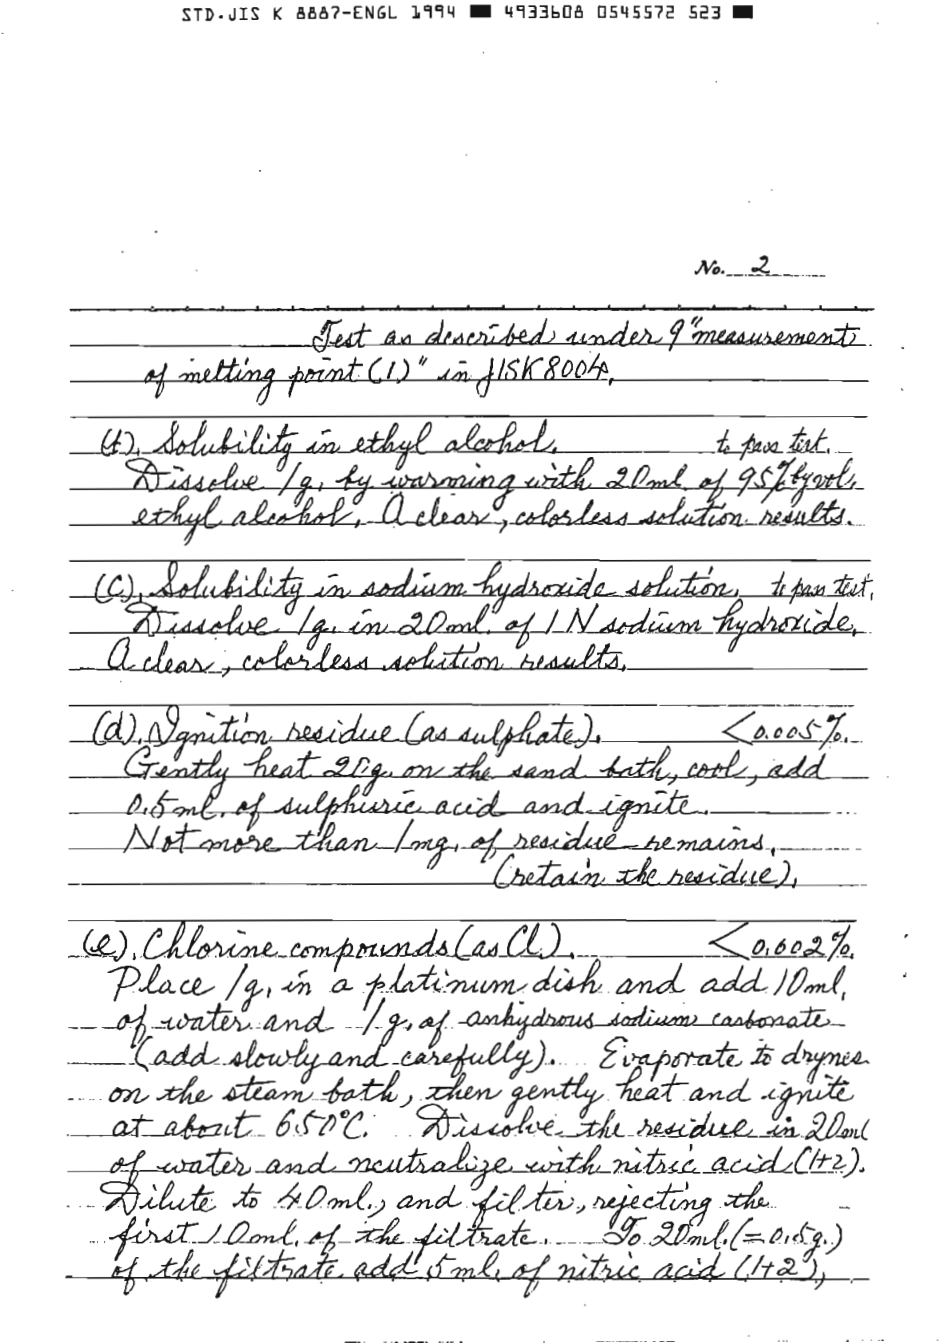 STD.JIS K 8887-ENGL 1994 ■ 4933608 0545572 523 ■
No. 2
Test as described under 9 "measurement
of melting point (1)" in JIS K 8004.
Solubility in ethyl alcohol. to pass test.
Dissolve 1g. by warming with 20ml. of 95% by vol.
ethyl alcohol. A clear, colorless solution results.
(C). Solubility in sodium hydroxide solution. to pass test.
Dissolve 1g. in 20ml. of 1 N sodium hydroxide.
A clear, colorless solution results.
(d). Ignition residue (as sulphate). <0.005%.
Gently heat 20g. on the sand bath, cool, add
0.5ml. of sulphuric acid and ignite.
Not more than 1mg. of residue remains.
(retain the residue).
(e). Chlorine compounds (as Cl). <0.002%.
Place 1g. in a platinum dish and add 10ml.
of water and 1g. of anhydrous sodium carbonate
(add slowly and carefully). Evaporate to drynes
on the steam bath, then gently heat and ignite
at about 650°C. Dissolve the residue in 20ml
of water and neutralize with nitric acid (1+2).
Dilute to 40ml., and filter, rejecting the
first 10ml. of the filtrate. To 20ml. (=0.5g.)
of the filtrate add 5ml. of nitric acid (1+2),